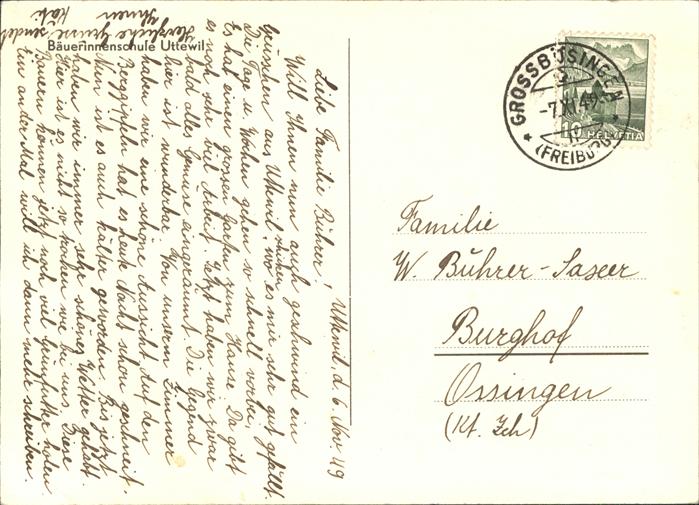 Bäuerinnenschule Uttewil
Uttewil, d. 6. Nov. 49
Liebe Familie Bührer!
Will Ihnen nun auch geschwind ein
Grüsschen aus Uttewil schicken, wo es mir sehr gut gefällt.
Die Tage u. Wochen gehen so schnell vorbei.
Es hat einen grossen Garten zum Hause. Da gibt
es noch sehr viel Arbeit. Jetzt haben wir zwar
bald alles Gemüse eingeräumt. Die Gegend
hier ist wunderbar. Von unserm Zimmer
haben wir eine schöne Aussicht. Auf den
Berggipfeln hat es heute Nacht schon geschneit.
Nun ist es auch kälter geworden. Bis jetzt
haben wir immer sehr schönes Wetter gehabt.
Hier ist es nicht so trocken wie bei uns. Diese
Bauern können jetzt noch viel Grünfutter holen.
Ein ander Mal will ich dann mehr schreiben.
Herzliche Grüsse sendet
Ihnen Käti
GROSSBÖSINGEN
-7.XI.49
(FREIBURG)
10
HELVETIA
Familie
W. Bührer-Saxer
Burghof
Ossingen
(Kt. Zch)